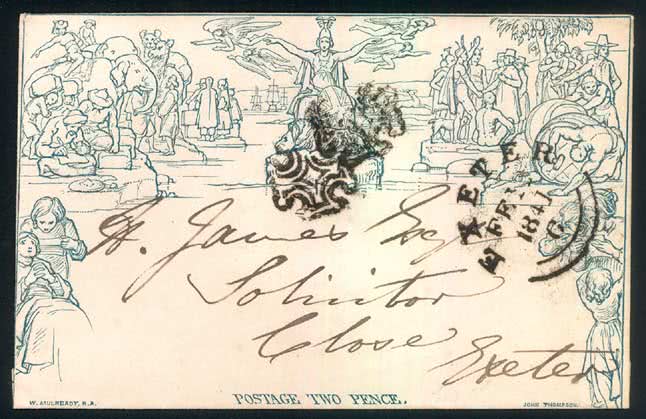 EXETER
FE
1841
H. James Esq
Solicitor
Close Exeter
POSTAGE TWO PENCE.
W. MULREADY, R.A.
JOHN THOMPSON.